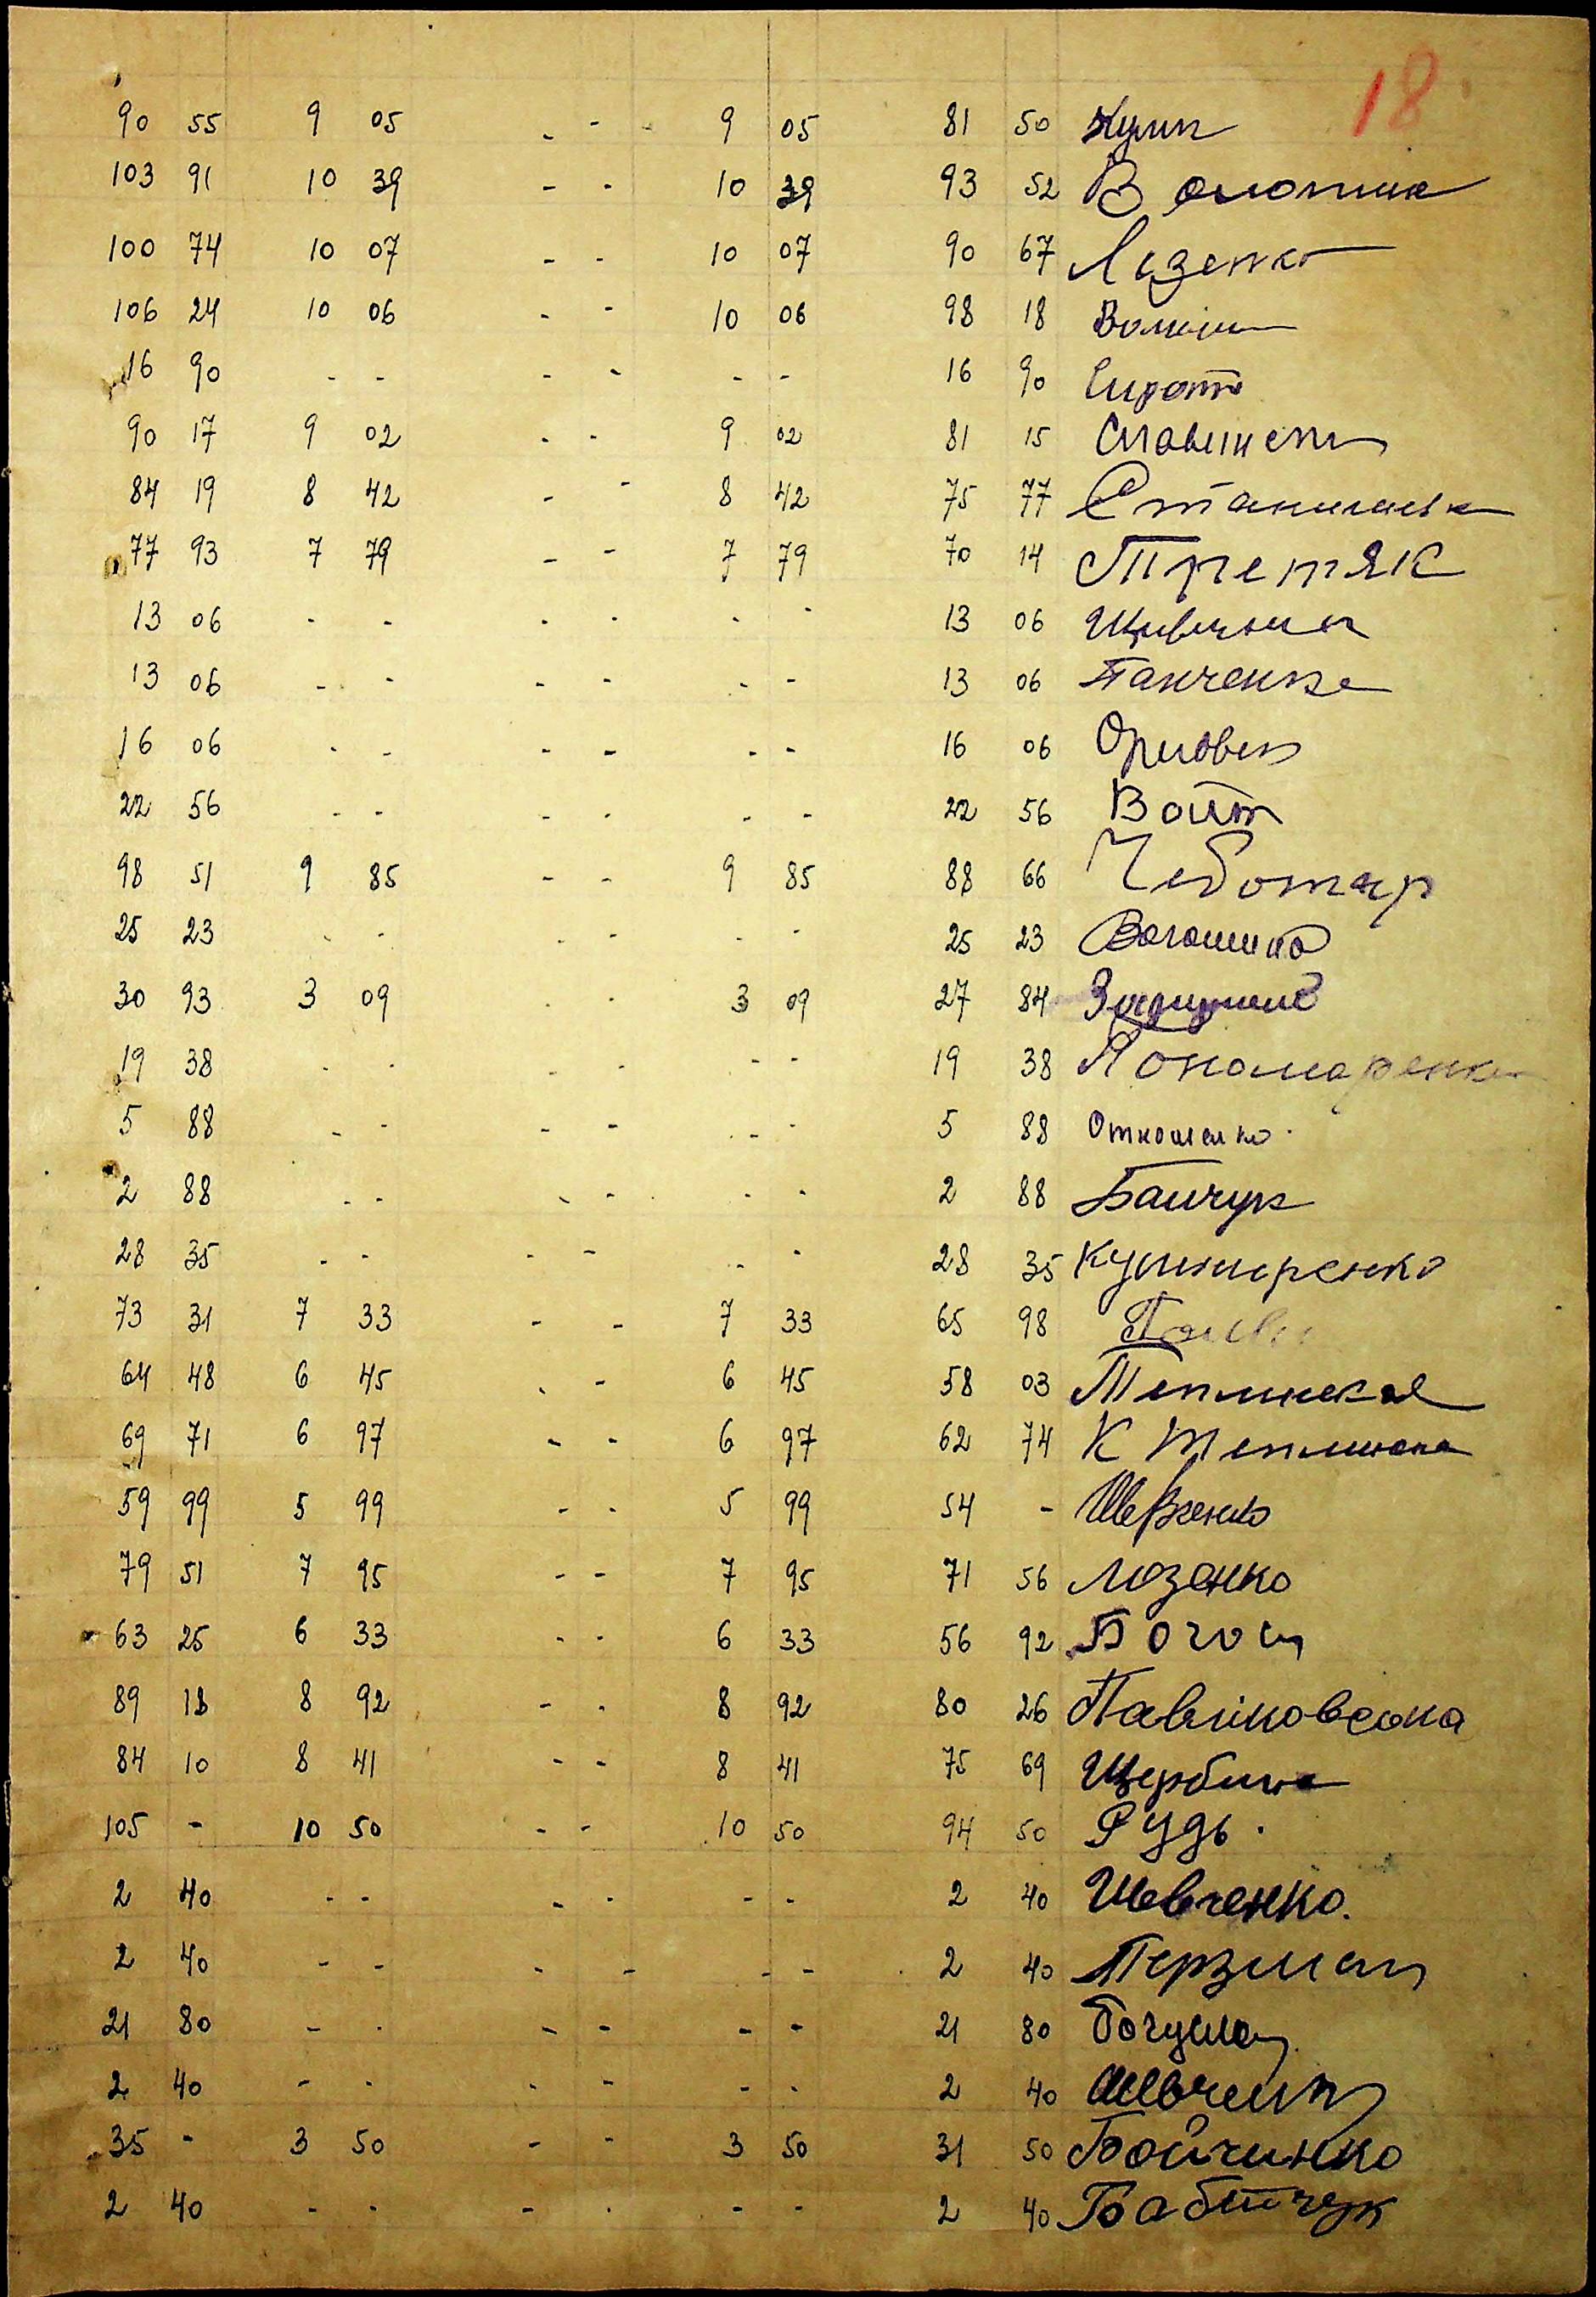 18
90 55 9 05 - - 9 05 81 50 Кулик
103 91 10 39 - - 10 39 93 52 В
100 74 10 07 - - 10 07 90 67 Лазенко
106 24 10 06 - - 10 06 98 18
16 90 - - - - - - 16 90 Сирота
90 17 9 02 - - 9 02 81 15
84 19 8 42 - - 8 42 75 77
77 93 7 79 - - 7 79 70 14 Третяк
13 06 - - - - - - 13 06
13 06 - - - - - - 13 06 Панченко
16 06 - - - - - - 16 06
22 56 - - - - - - 22 56 Войт
98 51 9 85 - - 9 85 88 66 Чеботар
25 23 - - - - - - 25 23 Волошина
30 93 3 09 - - 3 09 27 84
19 38 - - - - - - 19 38 Пономаренко
5 88 - - - - - - 5 88
2 88 - - - - - - 2 88
28 35 - - - - - - 28 35 Кушниренко
73 31 7 33 - - 7 33 65 98
64 48 6 45 - - 6 45 58 03
69 71 6 97 - - 6 97 62 74 К
59 99 5 99 - - 5 99 54 - Шевченко
79 51 7 95 - - 7 95 71 56 Лозенко
63 25 6 33 - - 6 33 56 92
89 18 8 92 - - 8 92 80 26 Павліковська
84 10 8 41 - - 8 41 75 69 Щербина
105 - 10 50 - - 10 50 94 50 Рудь.
2 40 - - - - - - 2 40 Шевченко.
2 40 - - - - - - 2 40 Перзман
21 80 - - - - - - 21 80
2 40 - - - - - - 2 40 Шевченко
35 - 3 50 - - 3 50 31 50 Бойчинко
2 40 - - - - - - 2 40